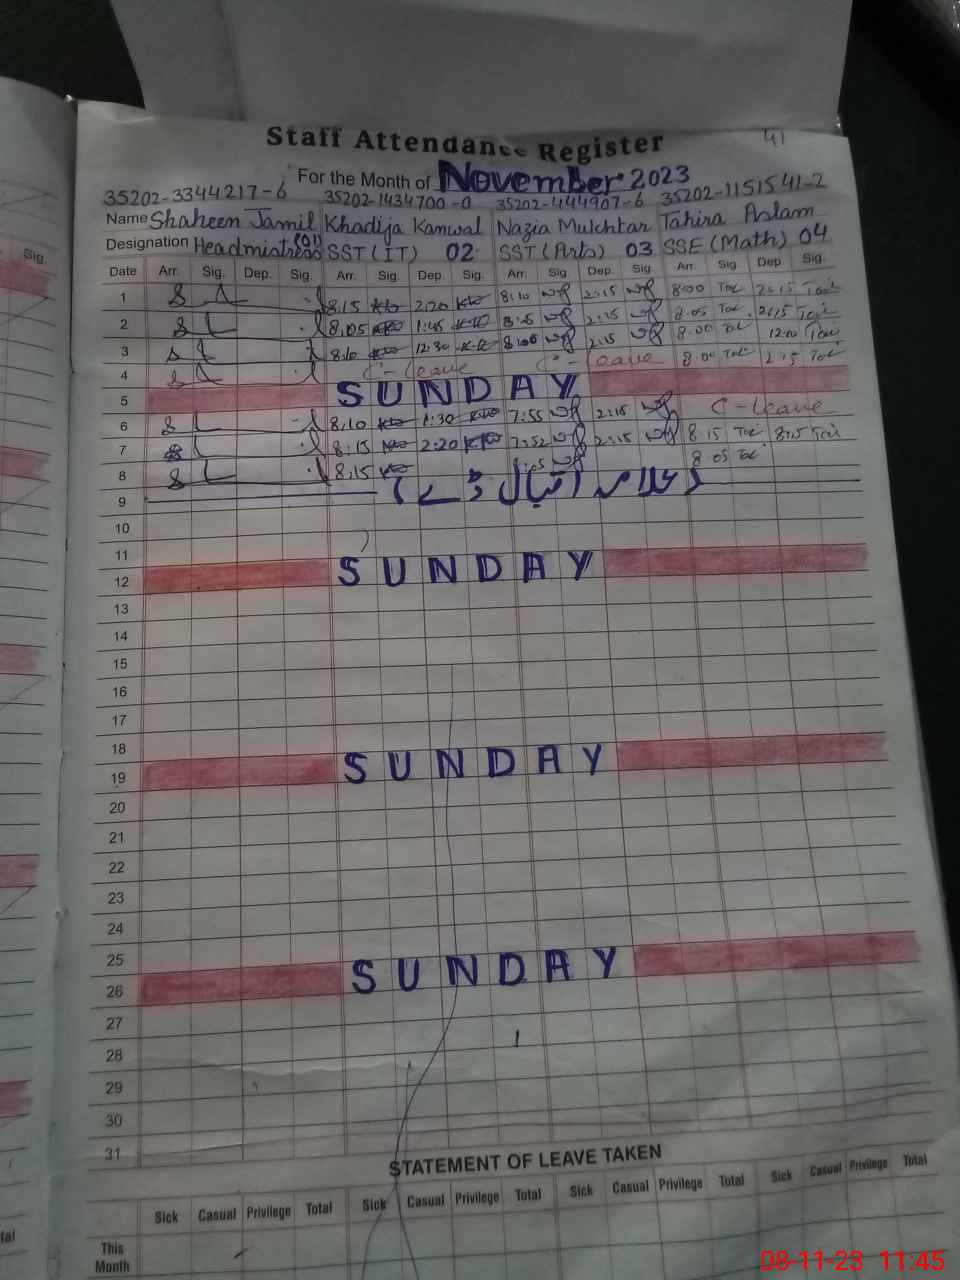 41
Staff Attendance Register
For the Month of November 2023
35202-3344217-6 35202-1434700-0 35202-444907-6 35202-1151541-2
Name Shaheen Jamil Khadija Kanwal Nazia Mukhtar Tahira Aslam
Designation Headmistress (01) SST (IT) 02 SST (Arts) 03 SSE (Math) 04
Sig.
Date Arr. Sig. Dep. Sig. Arr. Sig. Dep. Sig. Arr. Sig Dep. Sig. Arr. Sig Dep Sig.
1 8.15 2:20 8:10 2:15 8:00 2:15
2 8.05 1:45 2:15 8.05 2:15
3 8.10 12:30 8:00 2:15 8.00 12:00
4 C-leave C-leave 8.00 2:15
5 SUNDAY
6 8.10 1:30 7:55 2:15 C-leave
7 8:15 2:20 7:52 2:15 8.15
8 8.15 8.05
9 (علامہ اقبال ڈے)
10
11
12 SUNDAY
13
14
15
16
17
18
19 SUNDAY
20
21
22
23
24
25
26 SUNDAY
27
28
29
30
31
STATEMENT OF LEAVE TAKEN
Sick Casual Privilege Total Sick Casual Privilege Total Sick Casual Privilege Total Sick Casual Privilege Total
This Month
08-11-23 11:45